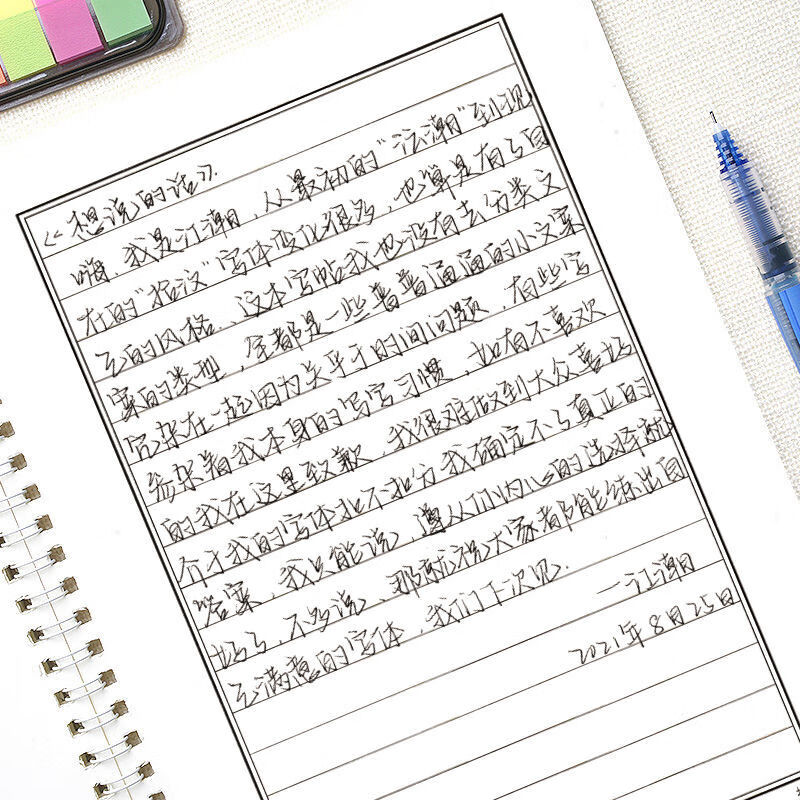 《想说的话》.
嗨,我是江潮,从最初的"江潮"到现
在的"拾汶"字体变化很多,也算是有了自
己的风格,这本字帖我也没有去分类文
案的类型,全都是一些普普通通的小文案
它杂在一起因为关乎于时间问题,有些字
参杂着我本身的写字习惯,如有不喜欢
的我在这里致歉,我很难做到大众喜好
介于我的字体扣不扣分我确定不了真正的
答案,我只能说,遵从你内心的选择就
好了,不多说,那就祝大家都能练出自
己满意的字体,我们下次见.
—江潮
2021年8月25日